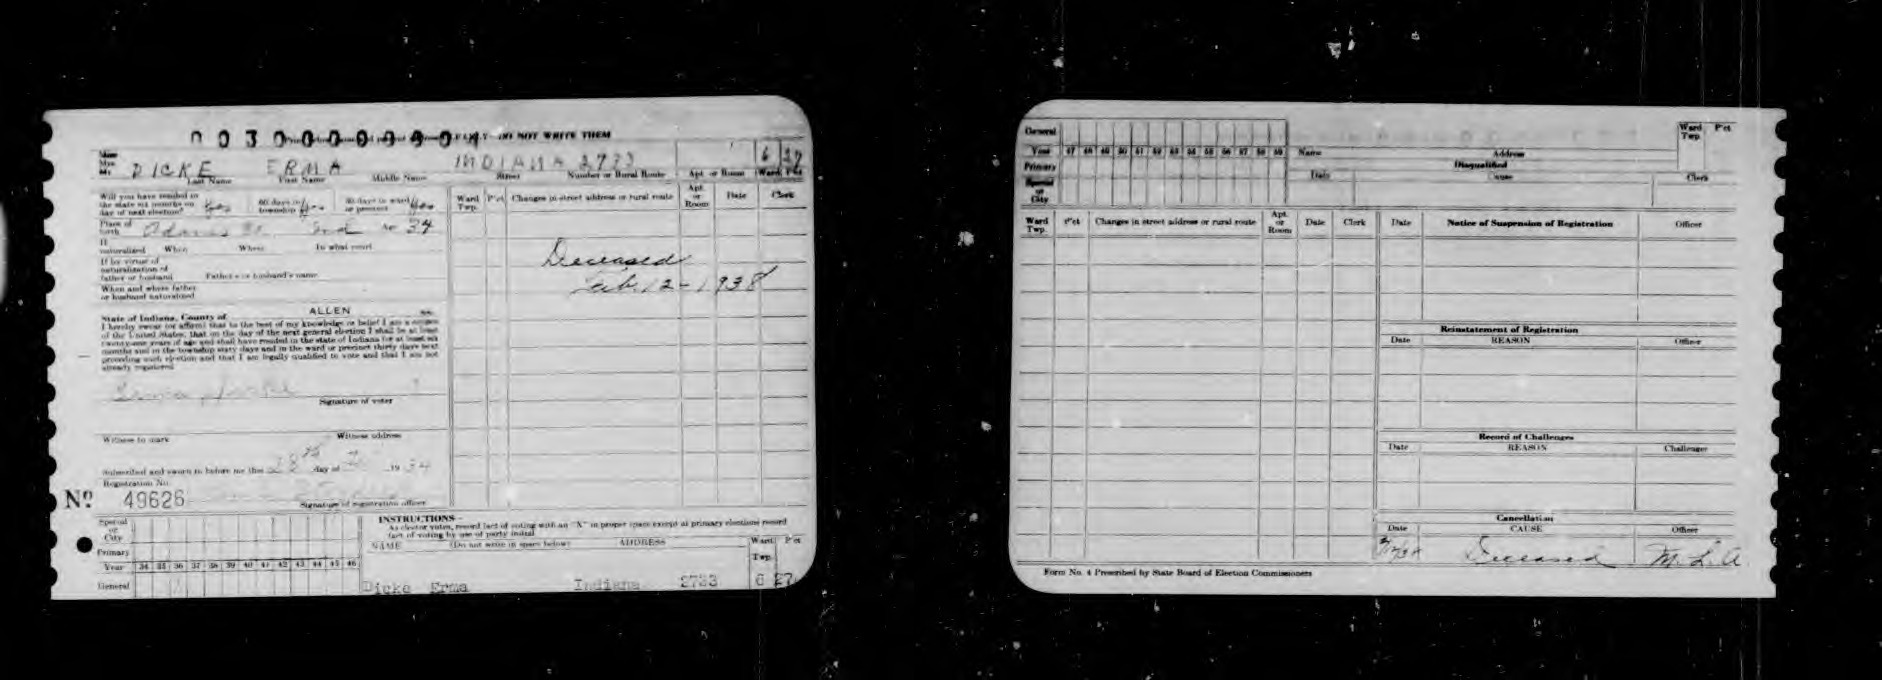 0030000904 DO NOT WRITE THEM
Miss
Mrs.
Mr. DICKE ERMA INDIANA 2733 6 27
Last Name First Name Middle Name Street Number or Rural Route Apt. or Room Ward Pct
Will you have resided in
the state six months on
day of next election? Yes 60 days in
township Yes 30 days in ward
or precinct Yes
Place of
birth Adams Co. Ind 34
If
naturalized When Where In what court
If by virtue of
naturalization of
father or husband Father's or husband's name
When and where father
or husband naturalized
State of Indiana, County of ALLEN ss.
I hereby swear (or affirm) that to the best of my knowledge or belief I am a citizen
of the United States, that on the day of the next general election I shall be at least
twenty-one years of age and shall have resided in the state of Indiana for at least six
months and in the township sixty days and in the ward or precinct thirty days next
preceding such election and that I am legally qualified to vote and that I am not
already registered
Erma Dicke
Signature of voter
Witness to mark Witness address
Subscribed and sworn to before me this 28 day of 19 34
Registration No.
No. 49626 Signature of registration officer
Ward
Twp. Pct Changes in street address or rural route Apt.
or
Room Date Clerk
Deceased
Feb. 12-1938
Special
or
City
Primary
Year 34 35 36 37 38 39 40 41 42 43 44 45 46
General
INSTRUCTIONS—
As elector votes, record fact of voting with an "X" in proper space except at primary elections record
fact of voting by use of party initial
NAME (Do not write in space below) ADDRESS Ward
Twp. Pct
Dicke Erma Indiana 2733 6 27
General
Year 47 48 49 50 51 52 53 54 55 56 57 58 59
Primary
Special
or
City
Name Address Ward
Twp. Pct
Disqualified
Date Cause Clerk
Ward
Twp. Pct Changes in street address or rural route Apt.
or
Room Date Clerk
Date Notice of Suspension of Registration Officer
Reinstatement of Registration
Date REASON Officer
Record of Challenges
Date REASON Challenger
Cancellation
Date CAUSE Officer
Deceased M. L. A.
Form No. 4 Prescribed by State Board of Election Commissioners